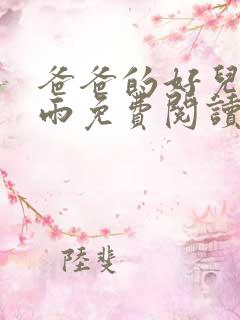 爸爸的好兒
雨免費閱讀
陸斐